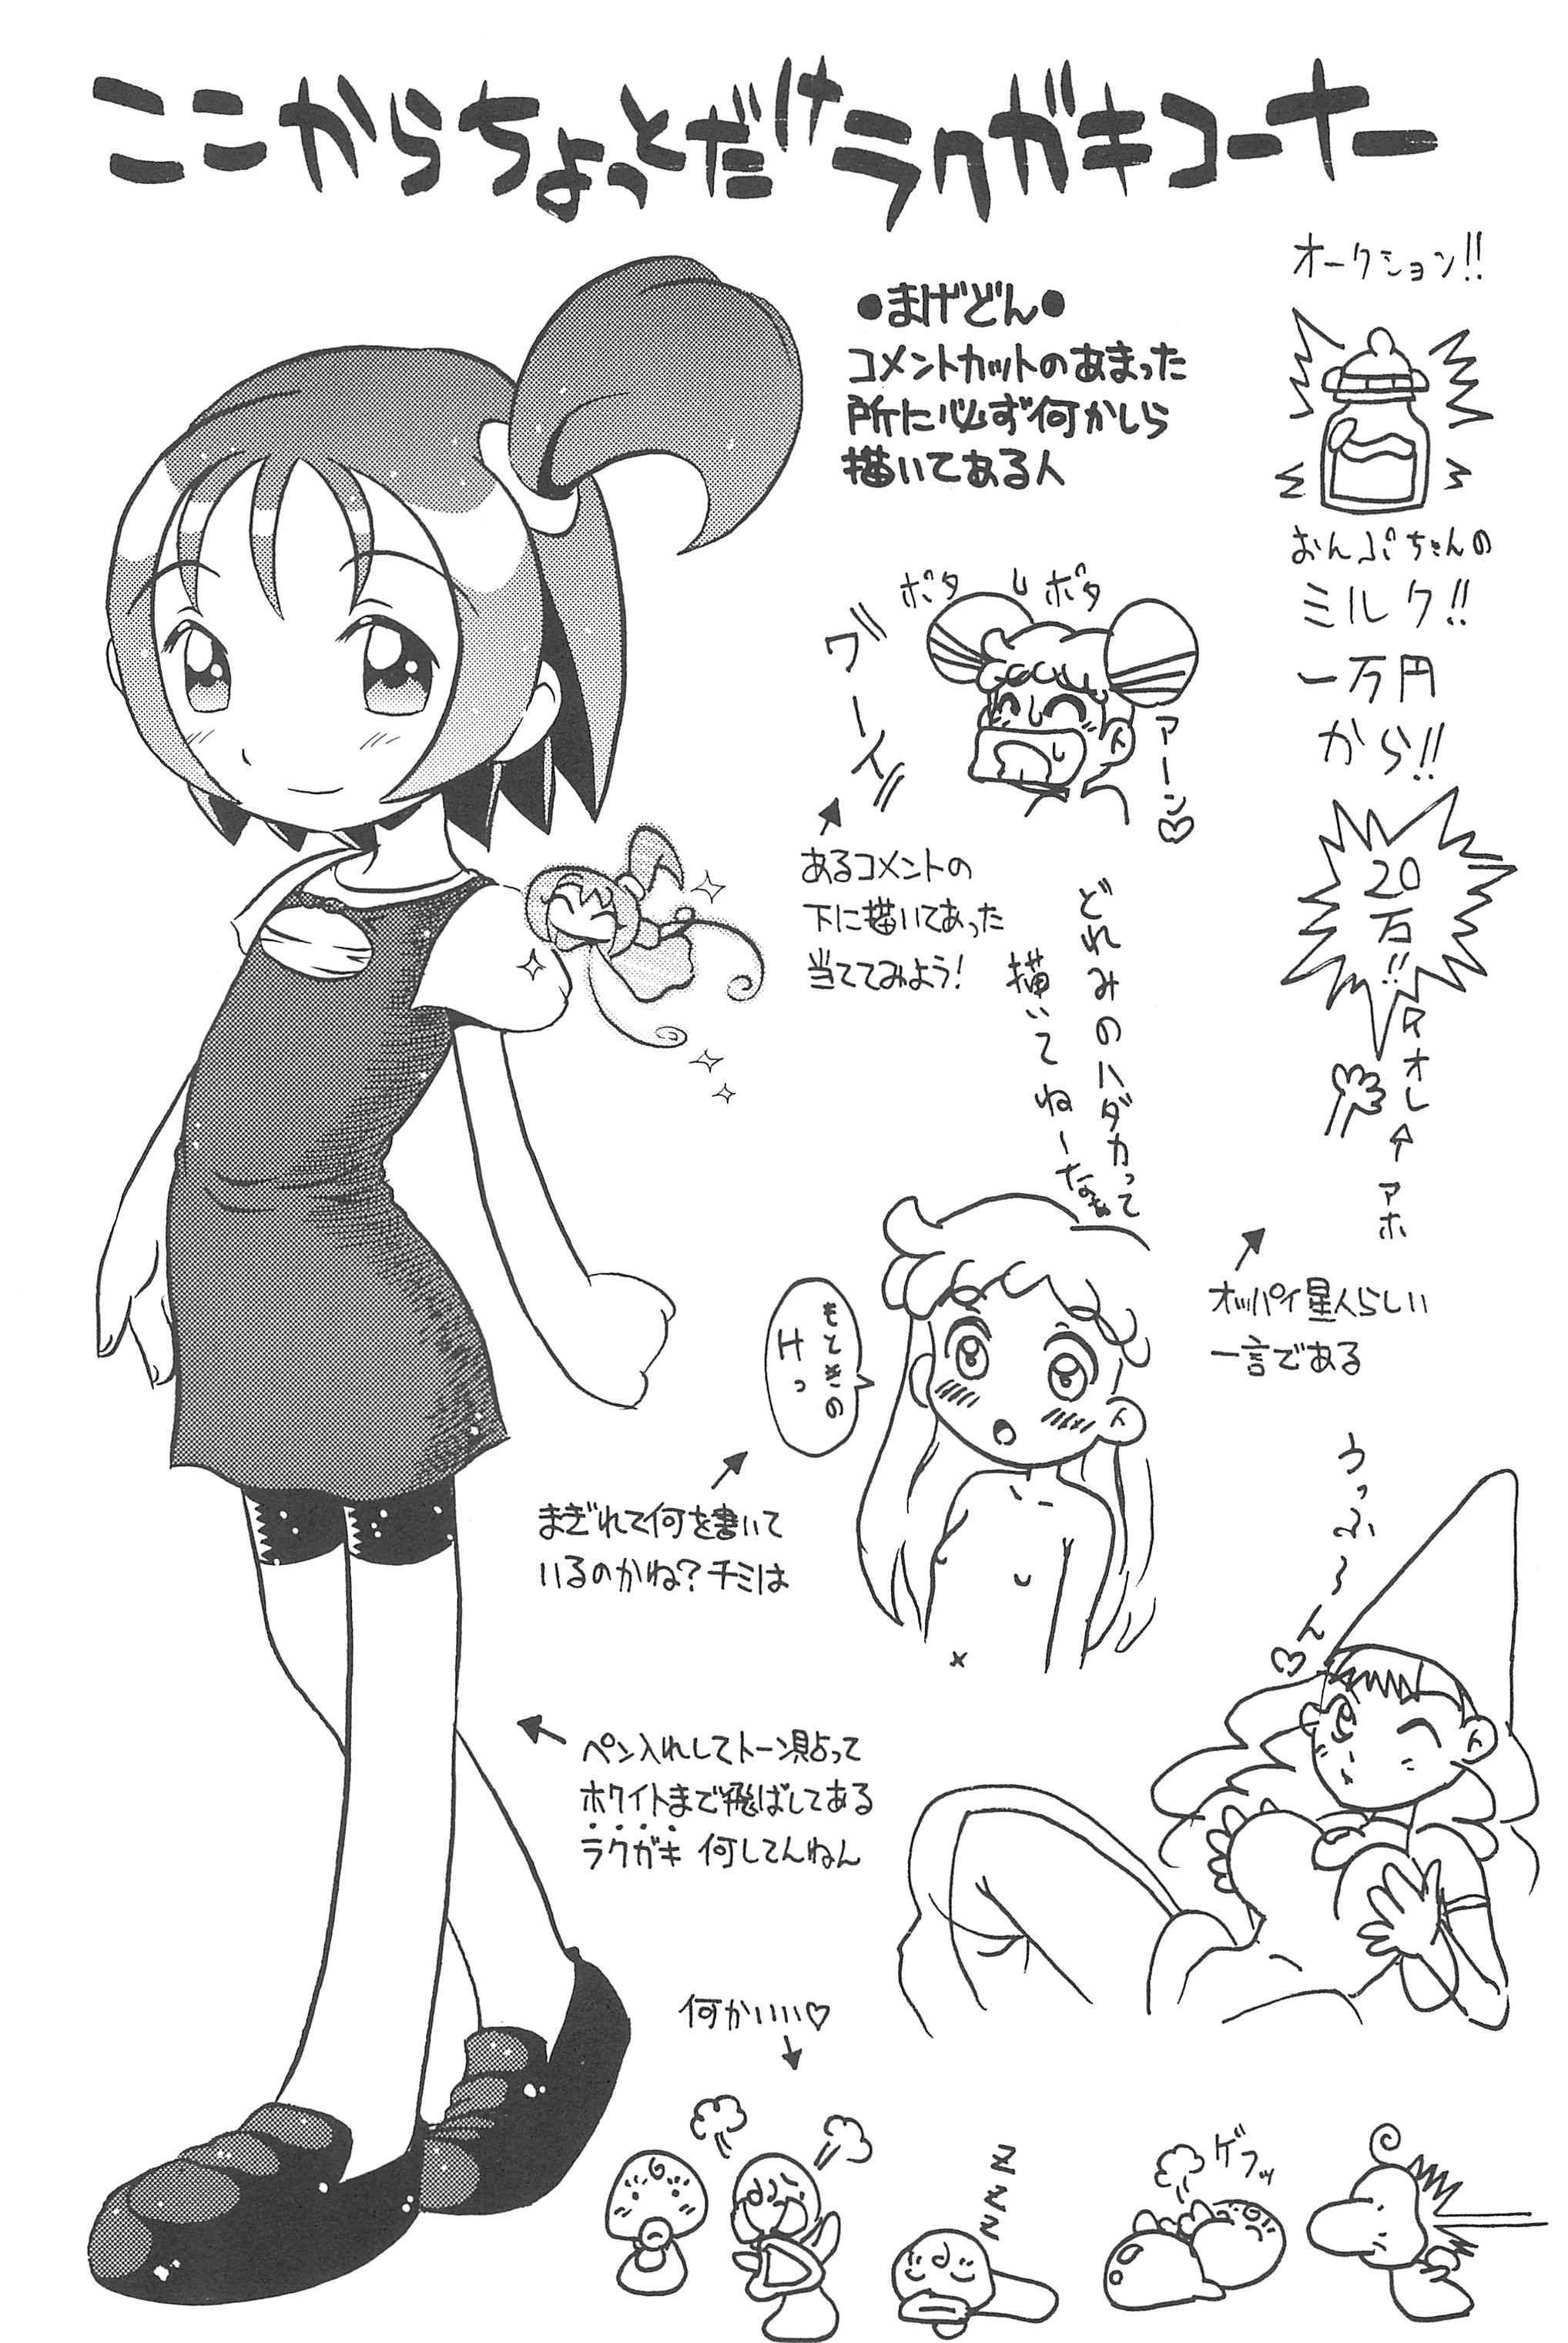 ここからちょっとだけラクガキコーナー
●まげどん●
コメントカットのあまった
所に必ず何かしら
描いてある人
オークション!!
おんぷちゃんの
ミルク!!
一万円
から!!
20
万!!
オレ
アホ
ボタ
ボタ
ワーイ
アーン♡
あるコメントの
下に描いてあった
当ててみよう!
どれみのハダカって
描いてねーなぁ
オッパイ星人らしい
一言である
もときの
Hっ
まぎれて何を書いて
いるのかね?チミは
うっふ〜ん♡
ペン入れしてトーン貼って
ホワイトまで飛ばしてある
ラクガキ 何してんねん
何かいい♡
ZZZZ
ゲフッ